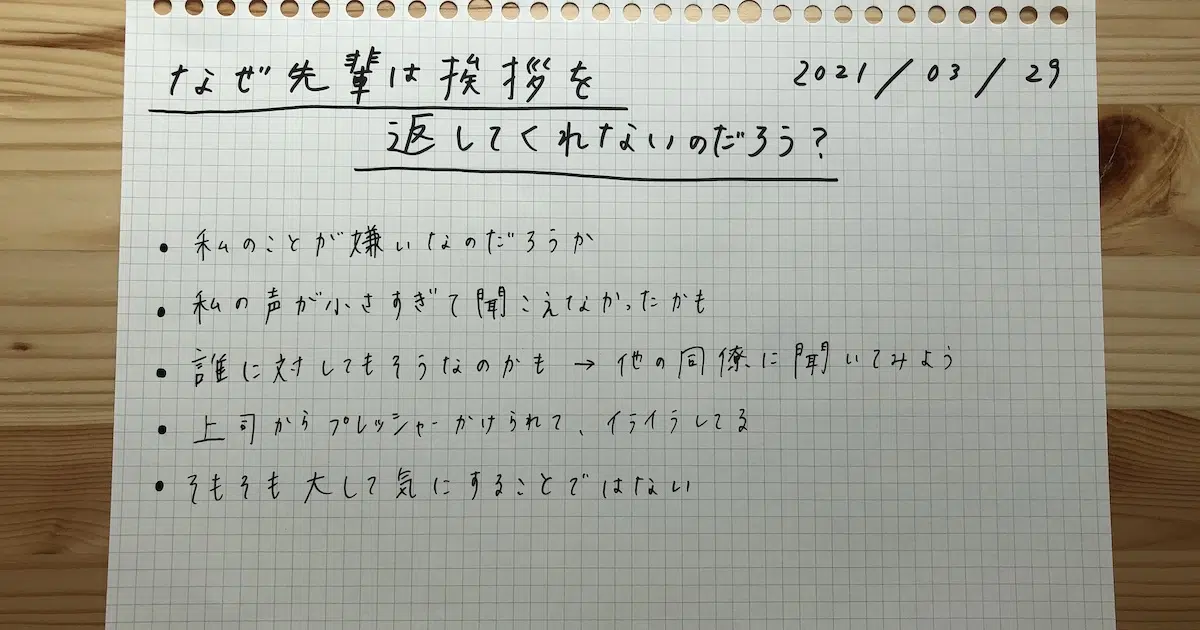 なぜ先輩は挨拶を 2021/03/29
返してくれないのだろう?
• 私のことが嫌いなのだろうか
• 私の声が小さすぎて聞こえなかったかも
• 誰に対してもそうなのかも → 他の同僚に聞いてみよう
• 上司からプレッシャーかけられて、イライラしてる
• そもそも大して気にすることではない